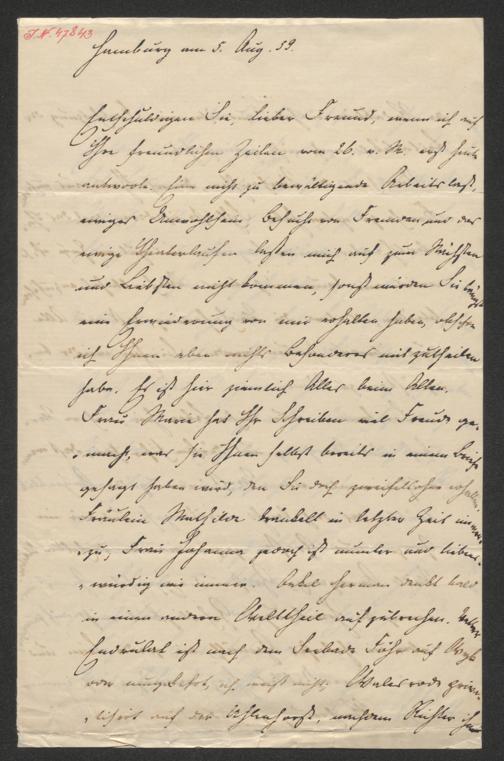 I.N. 47843
Hamburg am 5. Aug. 59.
Entschuldigen Sie, lieber Freund, wenn ich auf
Ihre freundlichen Zeilen vom 26. v. M. erst heute
antworte. Eine nicht zu bewältigende Arbeitslast,
einiges Unwohlsein, Besuche von Fremden, und das
ewige Theaterlaufen lassen mich auf zum Nächsten
und Liebsten nicht kommen, sonst würden Sie längst
eine Erwiderung von mir erhalten haben, obschon
ich Ihnen eben nichts Besonderes mitzutheilen
habe. Es ist hier ziemlich Alles beim Alten.
Frau Marie hat Ihr Schreiben viel Freude ge-
macht, was sie Ihnen selbst bereits in einem Briefe
gesagt haben wird, den Sie doch zweifelsohne erhalten.
Fräulein Mathilde kränkelt in letzter Zeit
zu, Frau Johanna jedoch ist munter und liebens-
würdig wie immer. Onkel Herman denkt bald
in einen andern Welttheil aufzubrechen.
Endrulat ist nach dem Seebade Föhr auf Wyk
oder umgekehrt, ich weiß nicht. Walesrode
auf der Uhlenhorst, nachdem Richter ihm